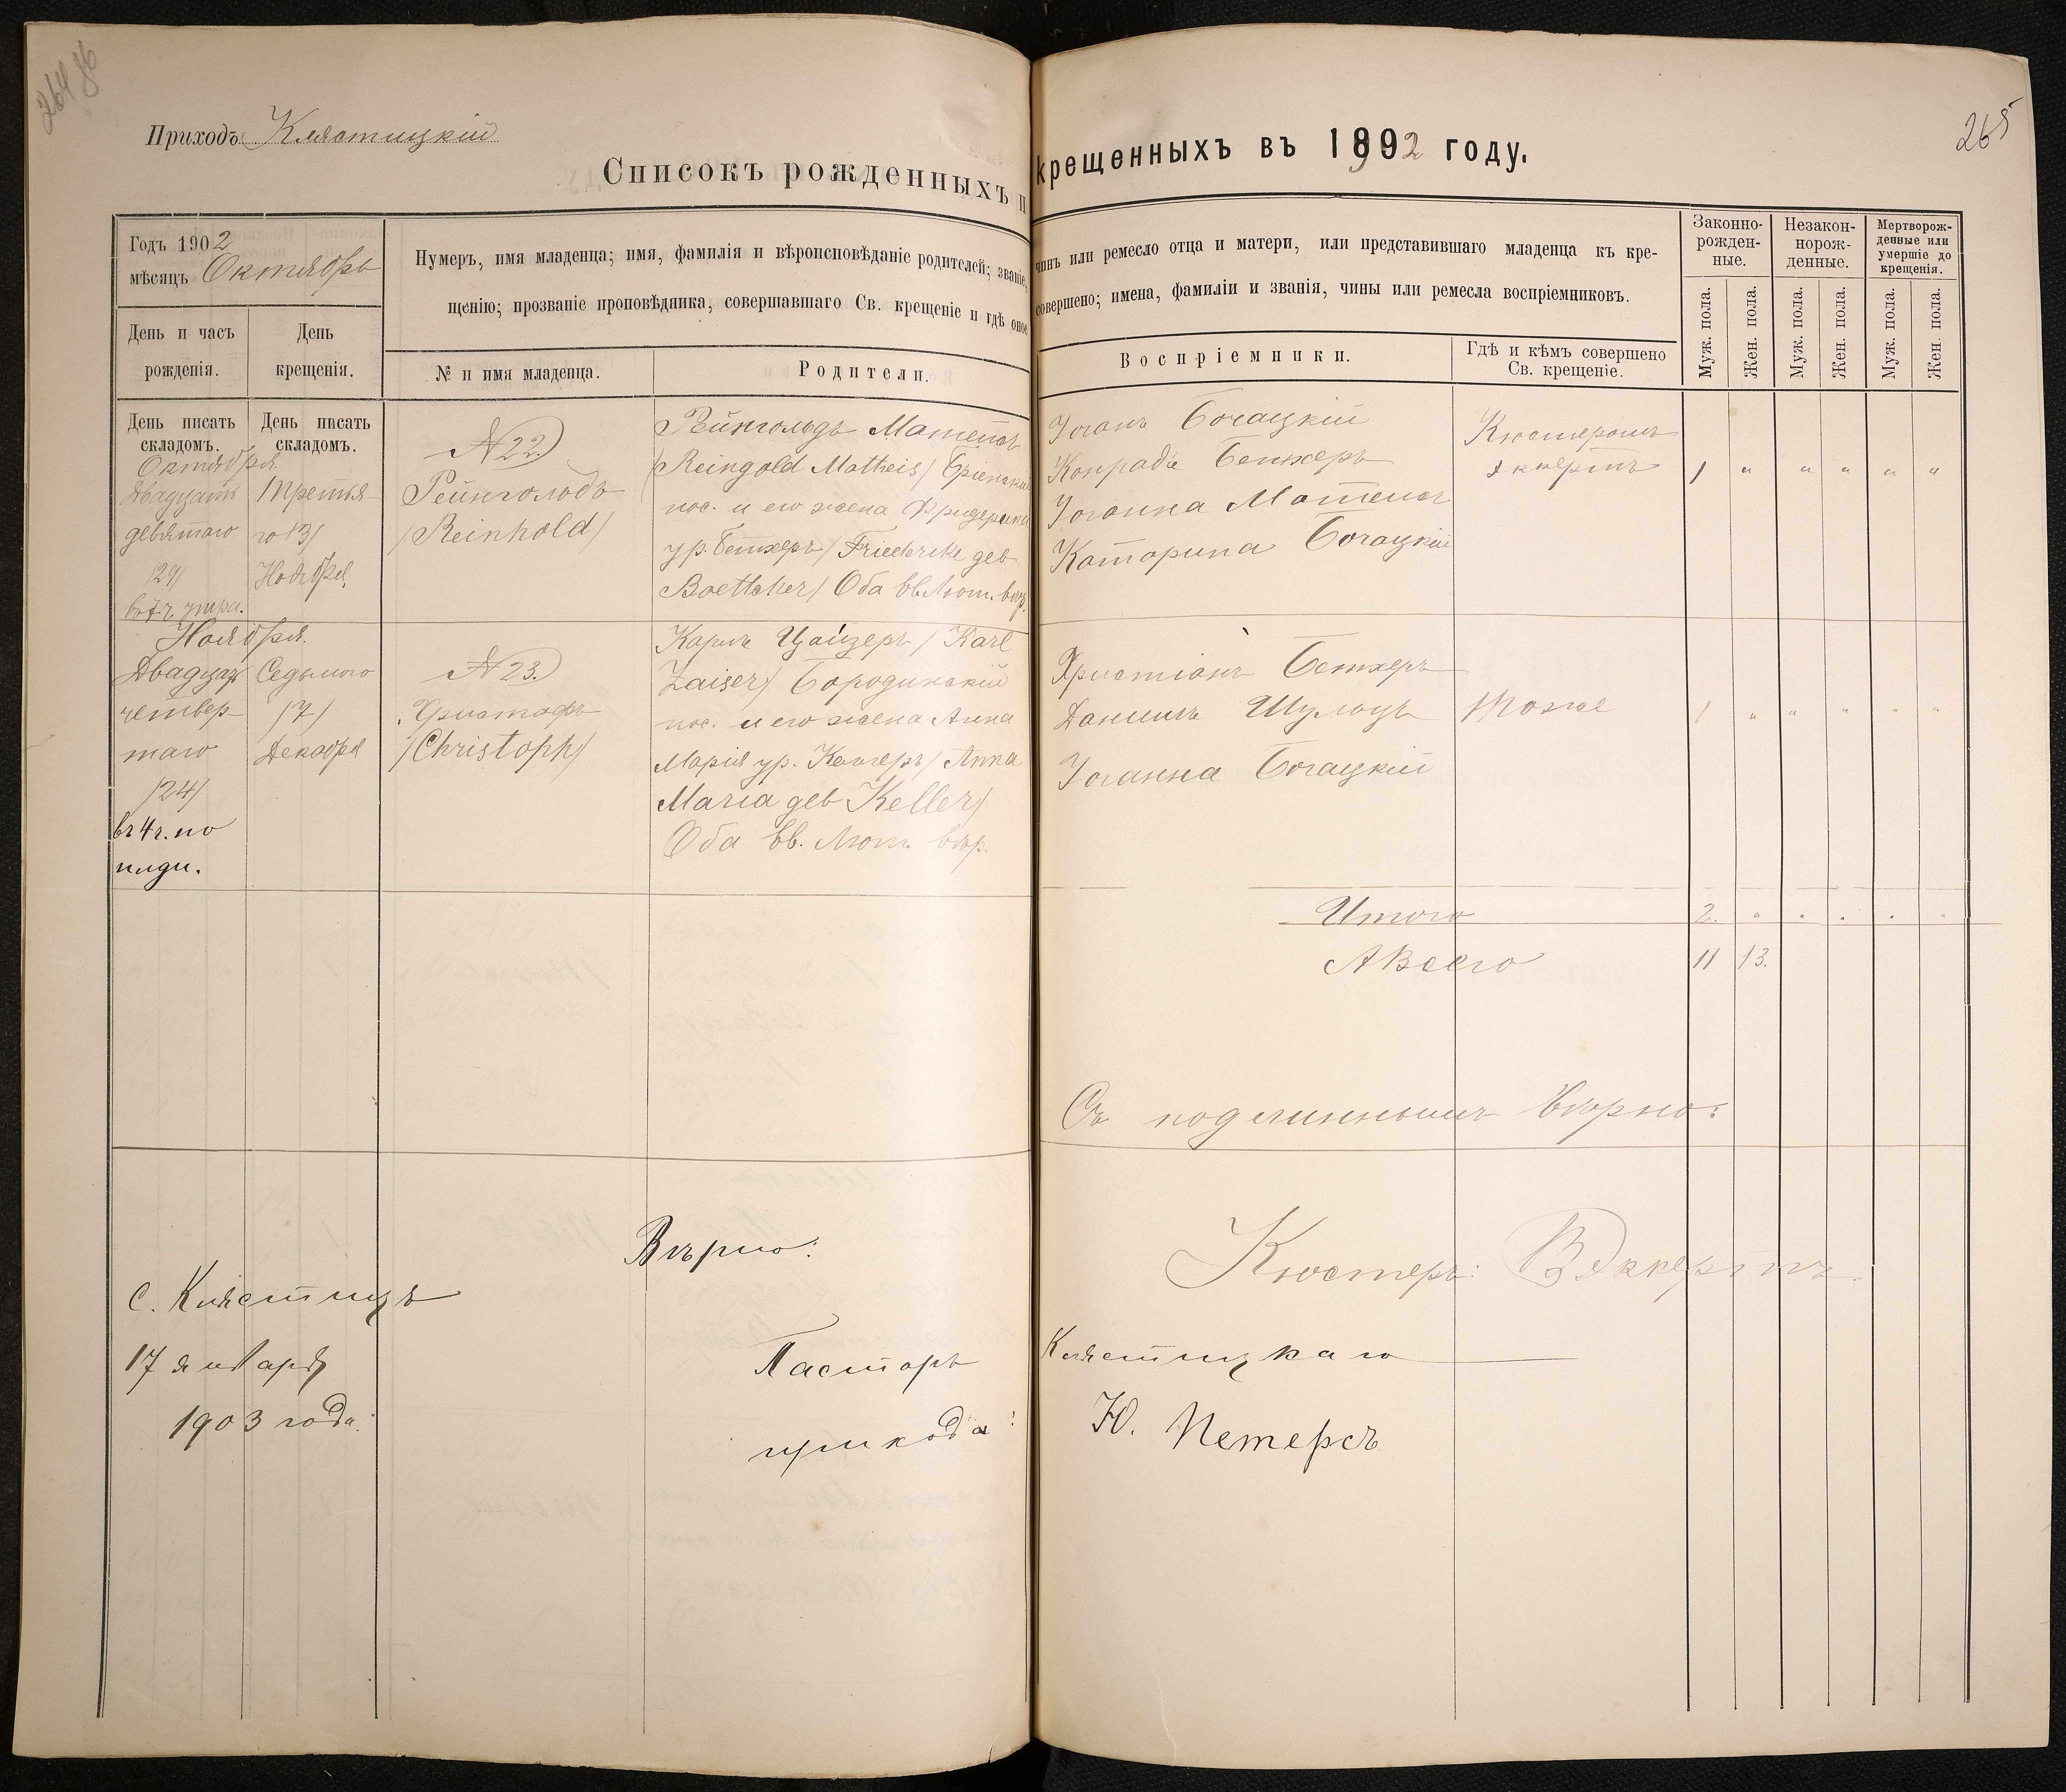 264 об
265
Приходъ Клястицкій
Списокъ рожденныхъ и крещенныхъ въ 1892 году.
9
Годъ 1902
мѣсяцъ Октябрь
День и часъ
рожденія.
День
крещенія.
Нумеръ, имя младенца; имя, фамилія и вѣроисповѣданіе родителей; званіе, чинъ или ремесло отца и матери, или представившаго младенца къ кре-
щенію; прозваніе проповѣдника, совершавшаго Св. крещеніе и гдѣ оное совершено; имена, фамиліи и званія, чины или ремесла воспріемниковъ.
№ и имя младенца.
Родители.
Воспріемники.
Гдѣ и кѣмъ совершено
Св. крещеніе.
Законно-
рожден-
ные.
Незакон-
норож-
денные.
Мертворож-
денные или
умершіе до
крещенія.
Муж. пола.
Жен. пола.
Муж. пола.
Жен. пола.
Муж. пола.
Жен. пола.
День писать
складомъ.
День писать
складомъ.
Октября.
Двадцать
девятаго
/29/
въ 7 ч. утра.
Третья-
го /3/
Ноября.
N 22.
Рейнгольдъ
/Reinhold/
Рейнгольдъ Матейсъ
/Reingold Matheis/ Бріенскій
пос. и его жена Фридерика
ур. Бетхеръ /Friederike geb
Boettcher/ Оба Ев. Лют. вѣр.
Іоганъ Богацкій
Конрадъ Бетхеръ
Іоганна Матейсъ
Катарина Богацкій
Кюстеромъ
Эккертъ
1 " " " " "
Ноября.
Двадцать
четвер-
таго
/24/
въ 4 ч. по
полди.
Седьмого
/7/
Декабря
N 23.
Христофъ
/Christoph/
Карлъ Цайзеръ /Karl
Zaiser/ Бородинскій
пос. и его жена Анна
Марія ур. Келлеръ /Anna
Maria geb Keller/
Оба Ев. Лют. вѣр.
Христіанъ Бетхеръ
Даніилъ Шульцъ
Іоганна Богацкій
Тоже
1 " " " " "
Итого 2. " " " " "
А Всего 11 13.
Съ подлиннымъ вѣрно:
Кюстеръ: В Эккертъ.
Вѣрно:
с. Клястицъ
17 января
1903 года.
Пасторъ Клястицкаго
прихода: Ю. Петерсъ